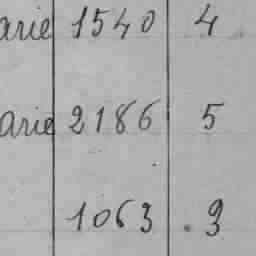 arie 1540 4
arie 2186 5
1063 . 3